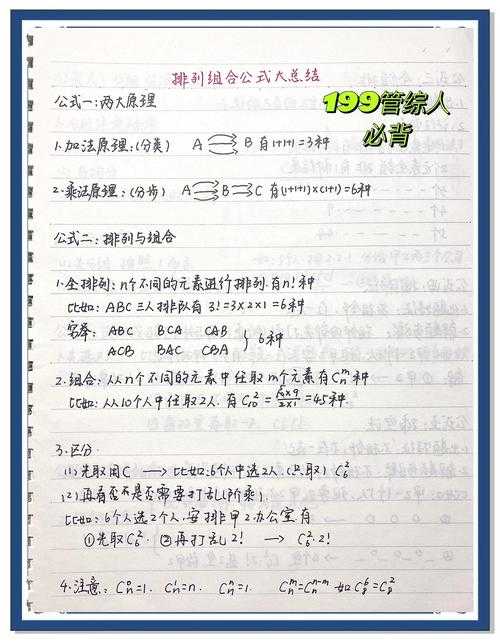 排列组合公式大总结
199管综人
必背
公式一:两大原理
1.加法原理:(分类) A→B 有1+1+1=3种
2.乘法原理:(分步) A→B→C 有(1+1+1)×(1+1)=6种
公式二:排列与组合
1.全排列:n个不同的元素进行排列.有n!种
比如:ABC三人排队有3!=3×2×1=6种
穷举: ABC BCA CAB
ACB BAC CBA } 6种
2.组合:从n个不同的元素中任取m个元素有Cₙᵐ种
比如:从10个人中任取2人.有C₁₀²=10×9/2×1=45种.
3.区分.
(1)先取用C → 比如:6个人中选2人(只取) C₆²
(2)再看否是否需要打乱(阶乘).
比如:6个人选2个人.安排甲乙办公室有
①先取C₆². ②再打乱2! → C₆²·2!
4.注意: Cₙ⁰=1. Cₙ¹=n. Cₙⁿ=1. Cₙᵐ=Cₙⁿ⁻ᵐ 如C₈⁶=C₈²